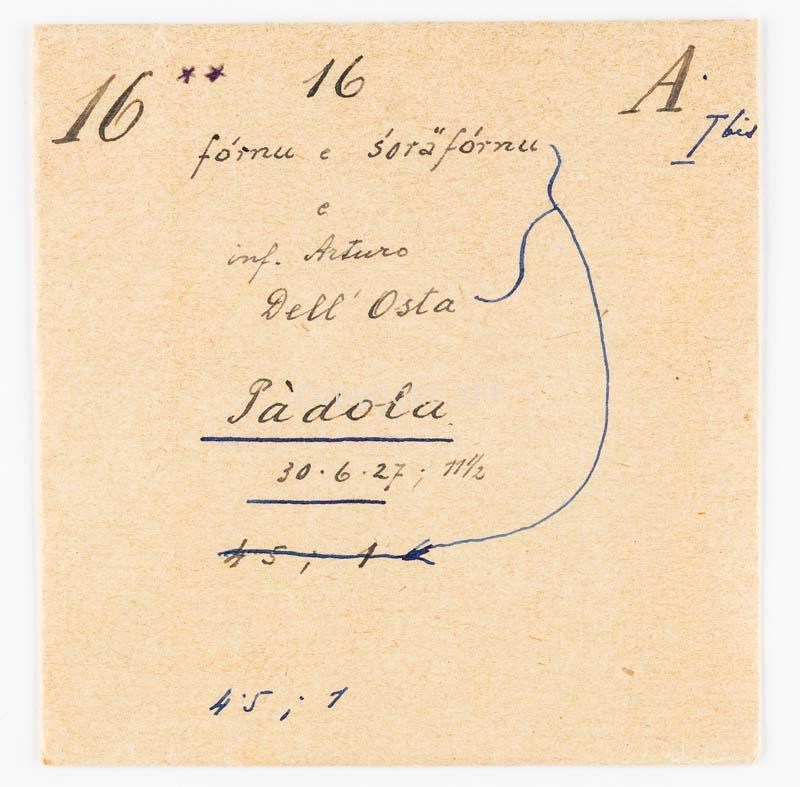 16 ** 16 A.
I bis
fórnu e śoräfórnu
e
inf. Arturo
Dell' Osta
Pàdola
30.6.27; 11½
45; 1
45; 1